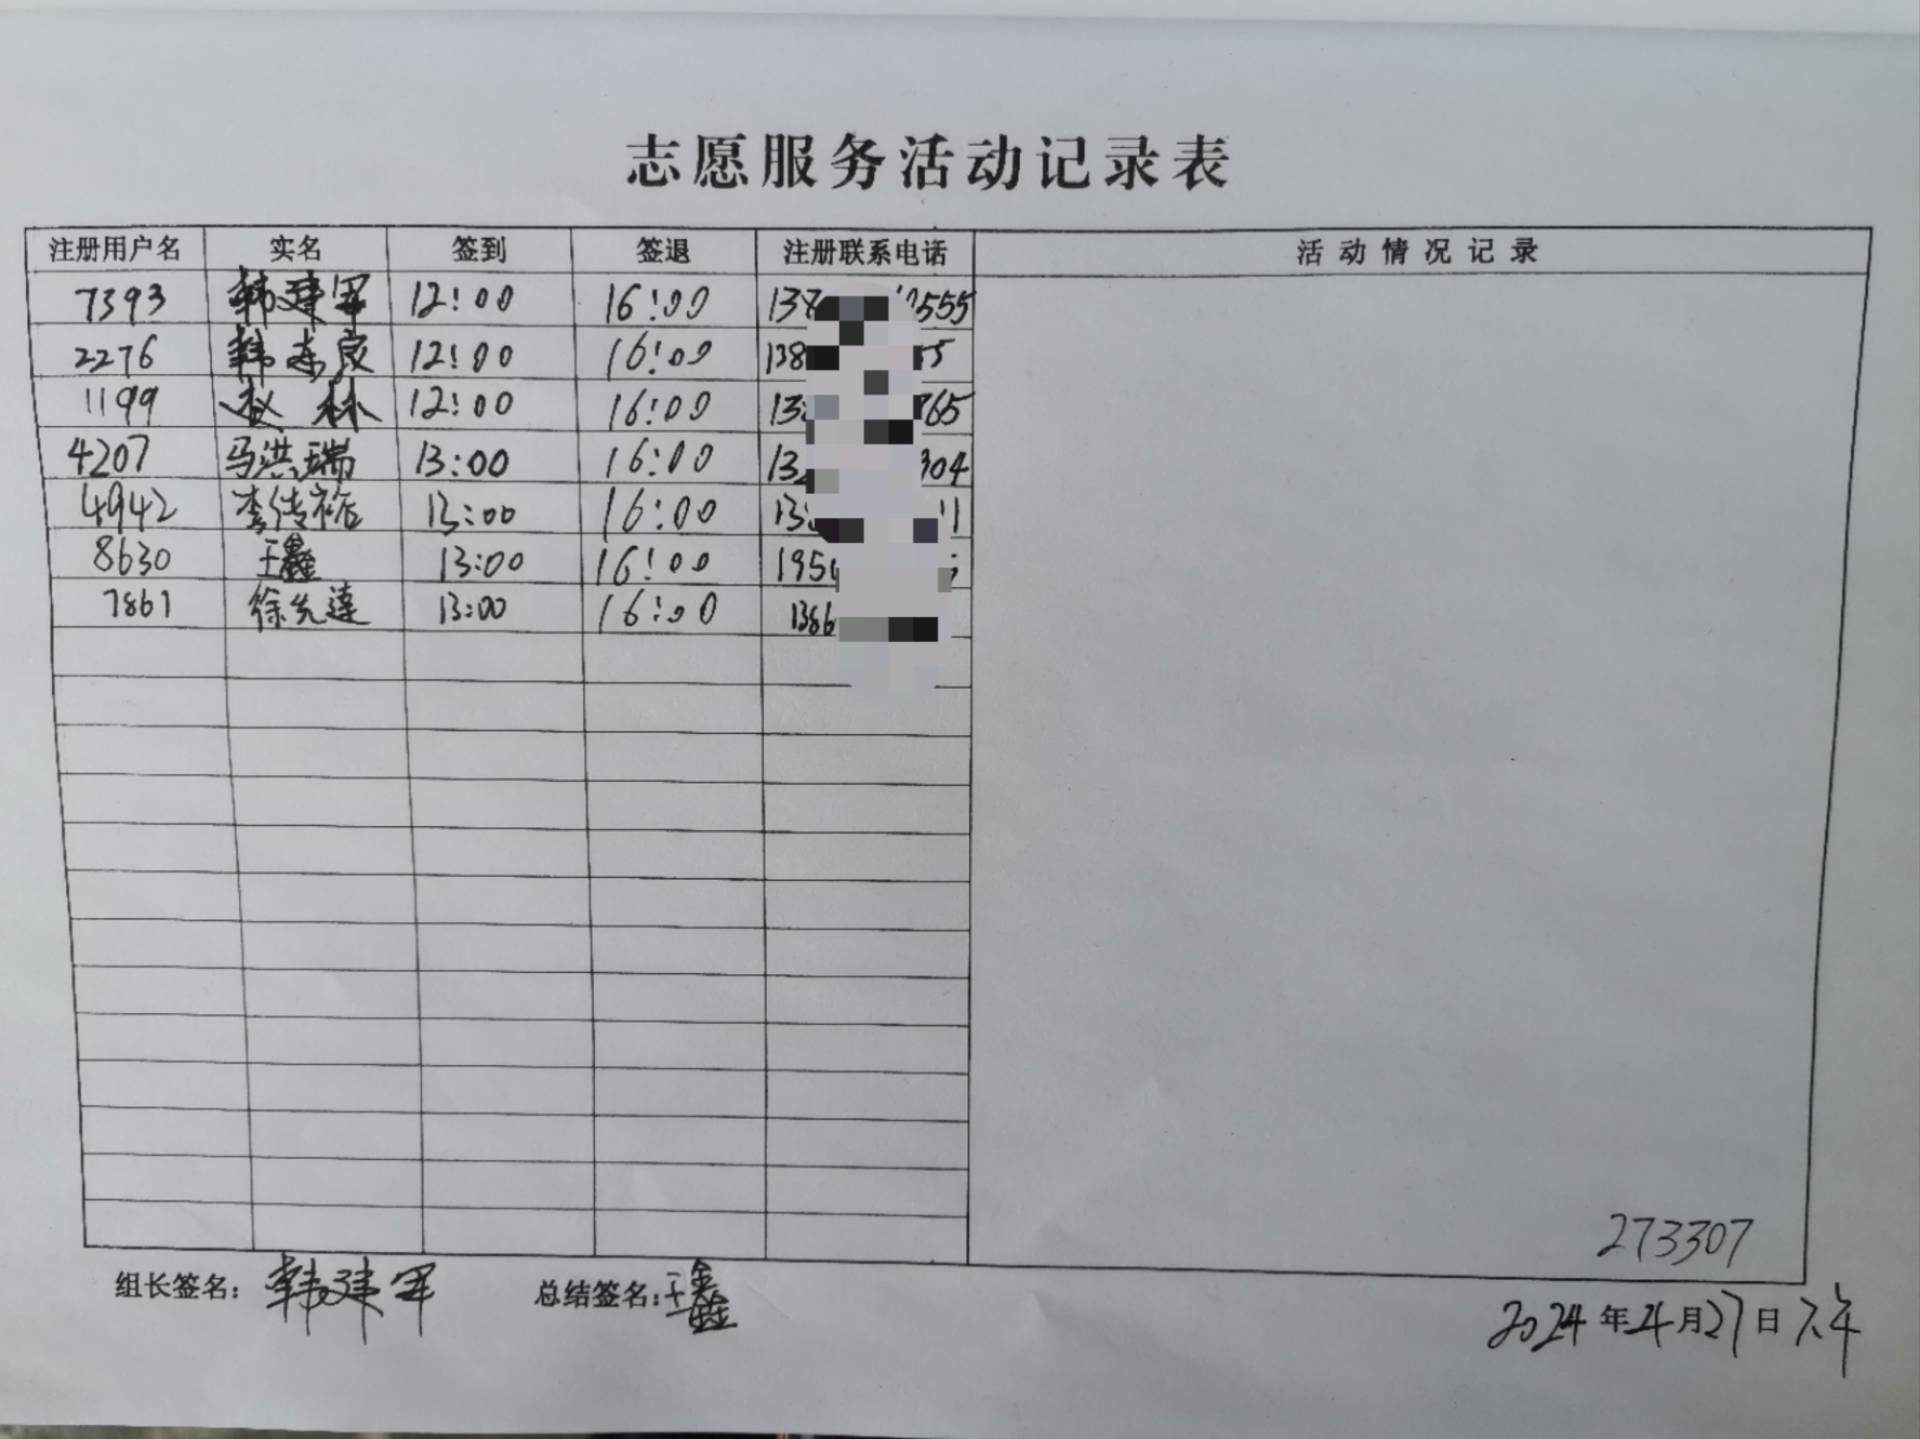 志愿服务活动记录表
注册用户名 实名 签到 签退 注册联系电话 活动情况记录
7393 韩建军 12:00 16:00 137 555
2276 韩东良 12:00 16:00 138 5
1199 赵林 12:00 16:00 13 765
4207 马洪瑞 13:00 16:00 13 304
4942 李传裕 13:00 16:00 13 11
8630 王鑫 13:00 16:00 195
7861 徐先莲 13:00 16:00 1386
273307
组长签名：韩建军 总结签名：王鑫
2024年4月27日 下午